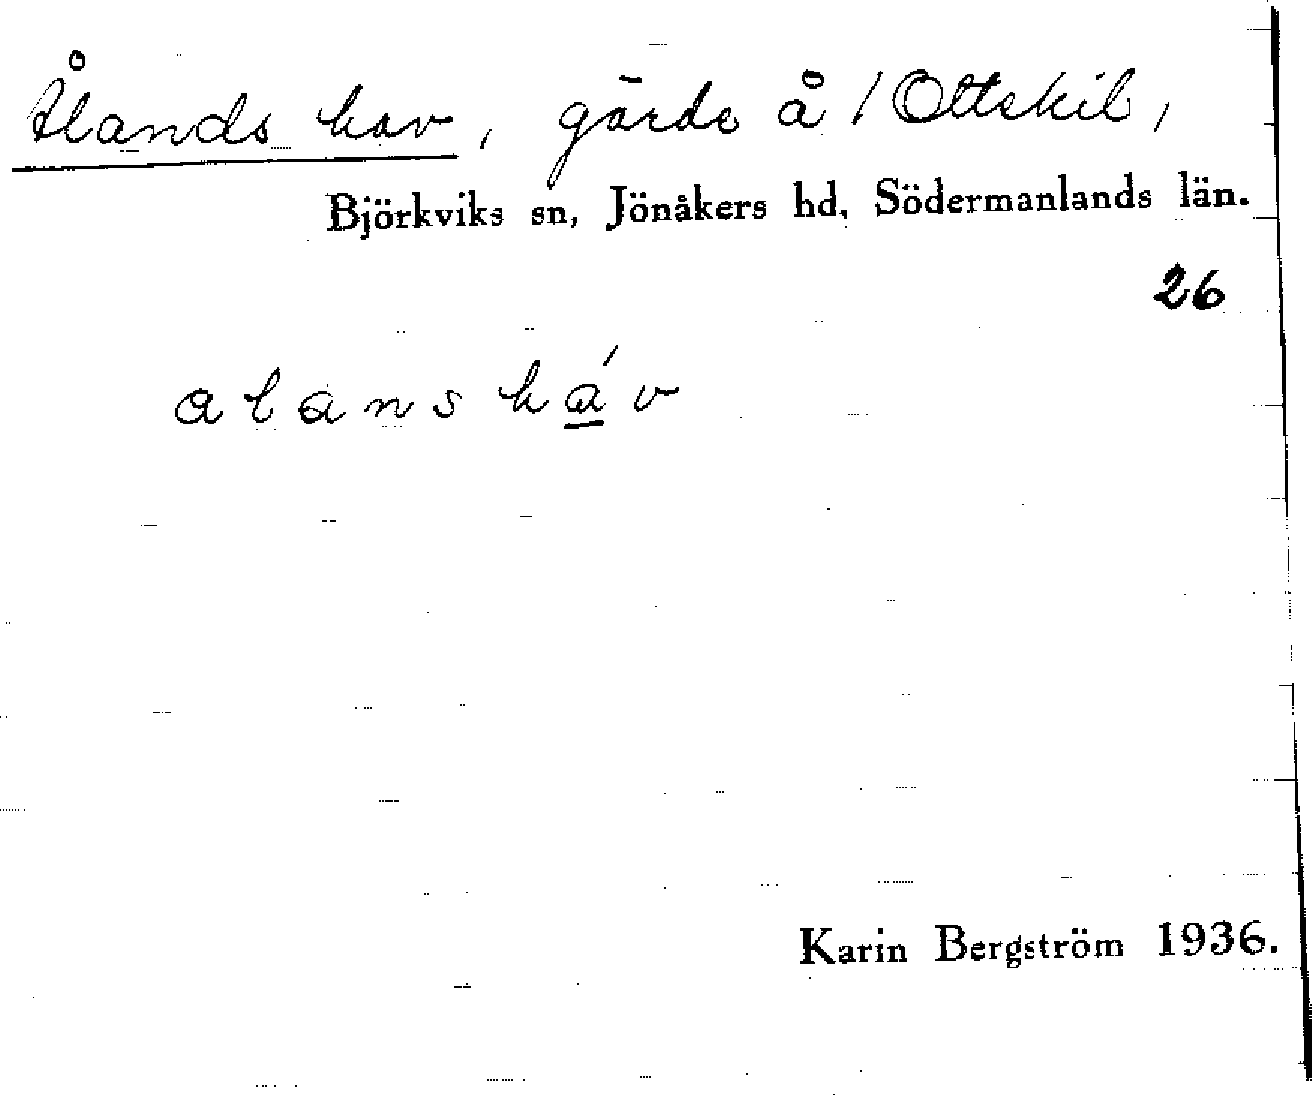 Ålands hav, gärde å 1 Ottekil,
Björkviks sn, Jönåkers hd, Södermanlands län.
26
alans háv
Karin Bergström 1936.